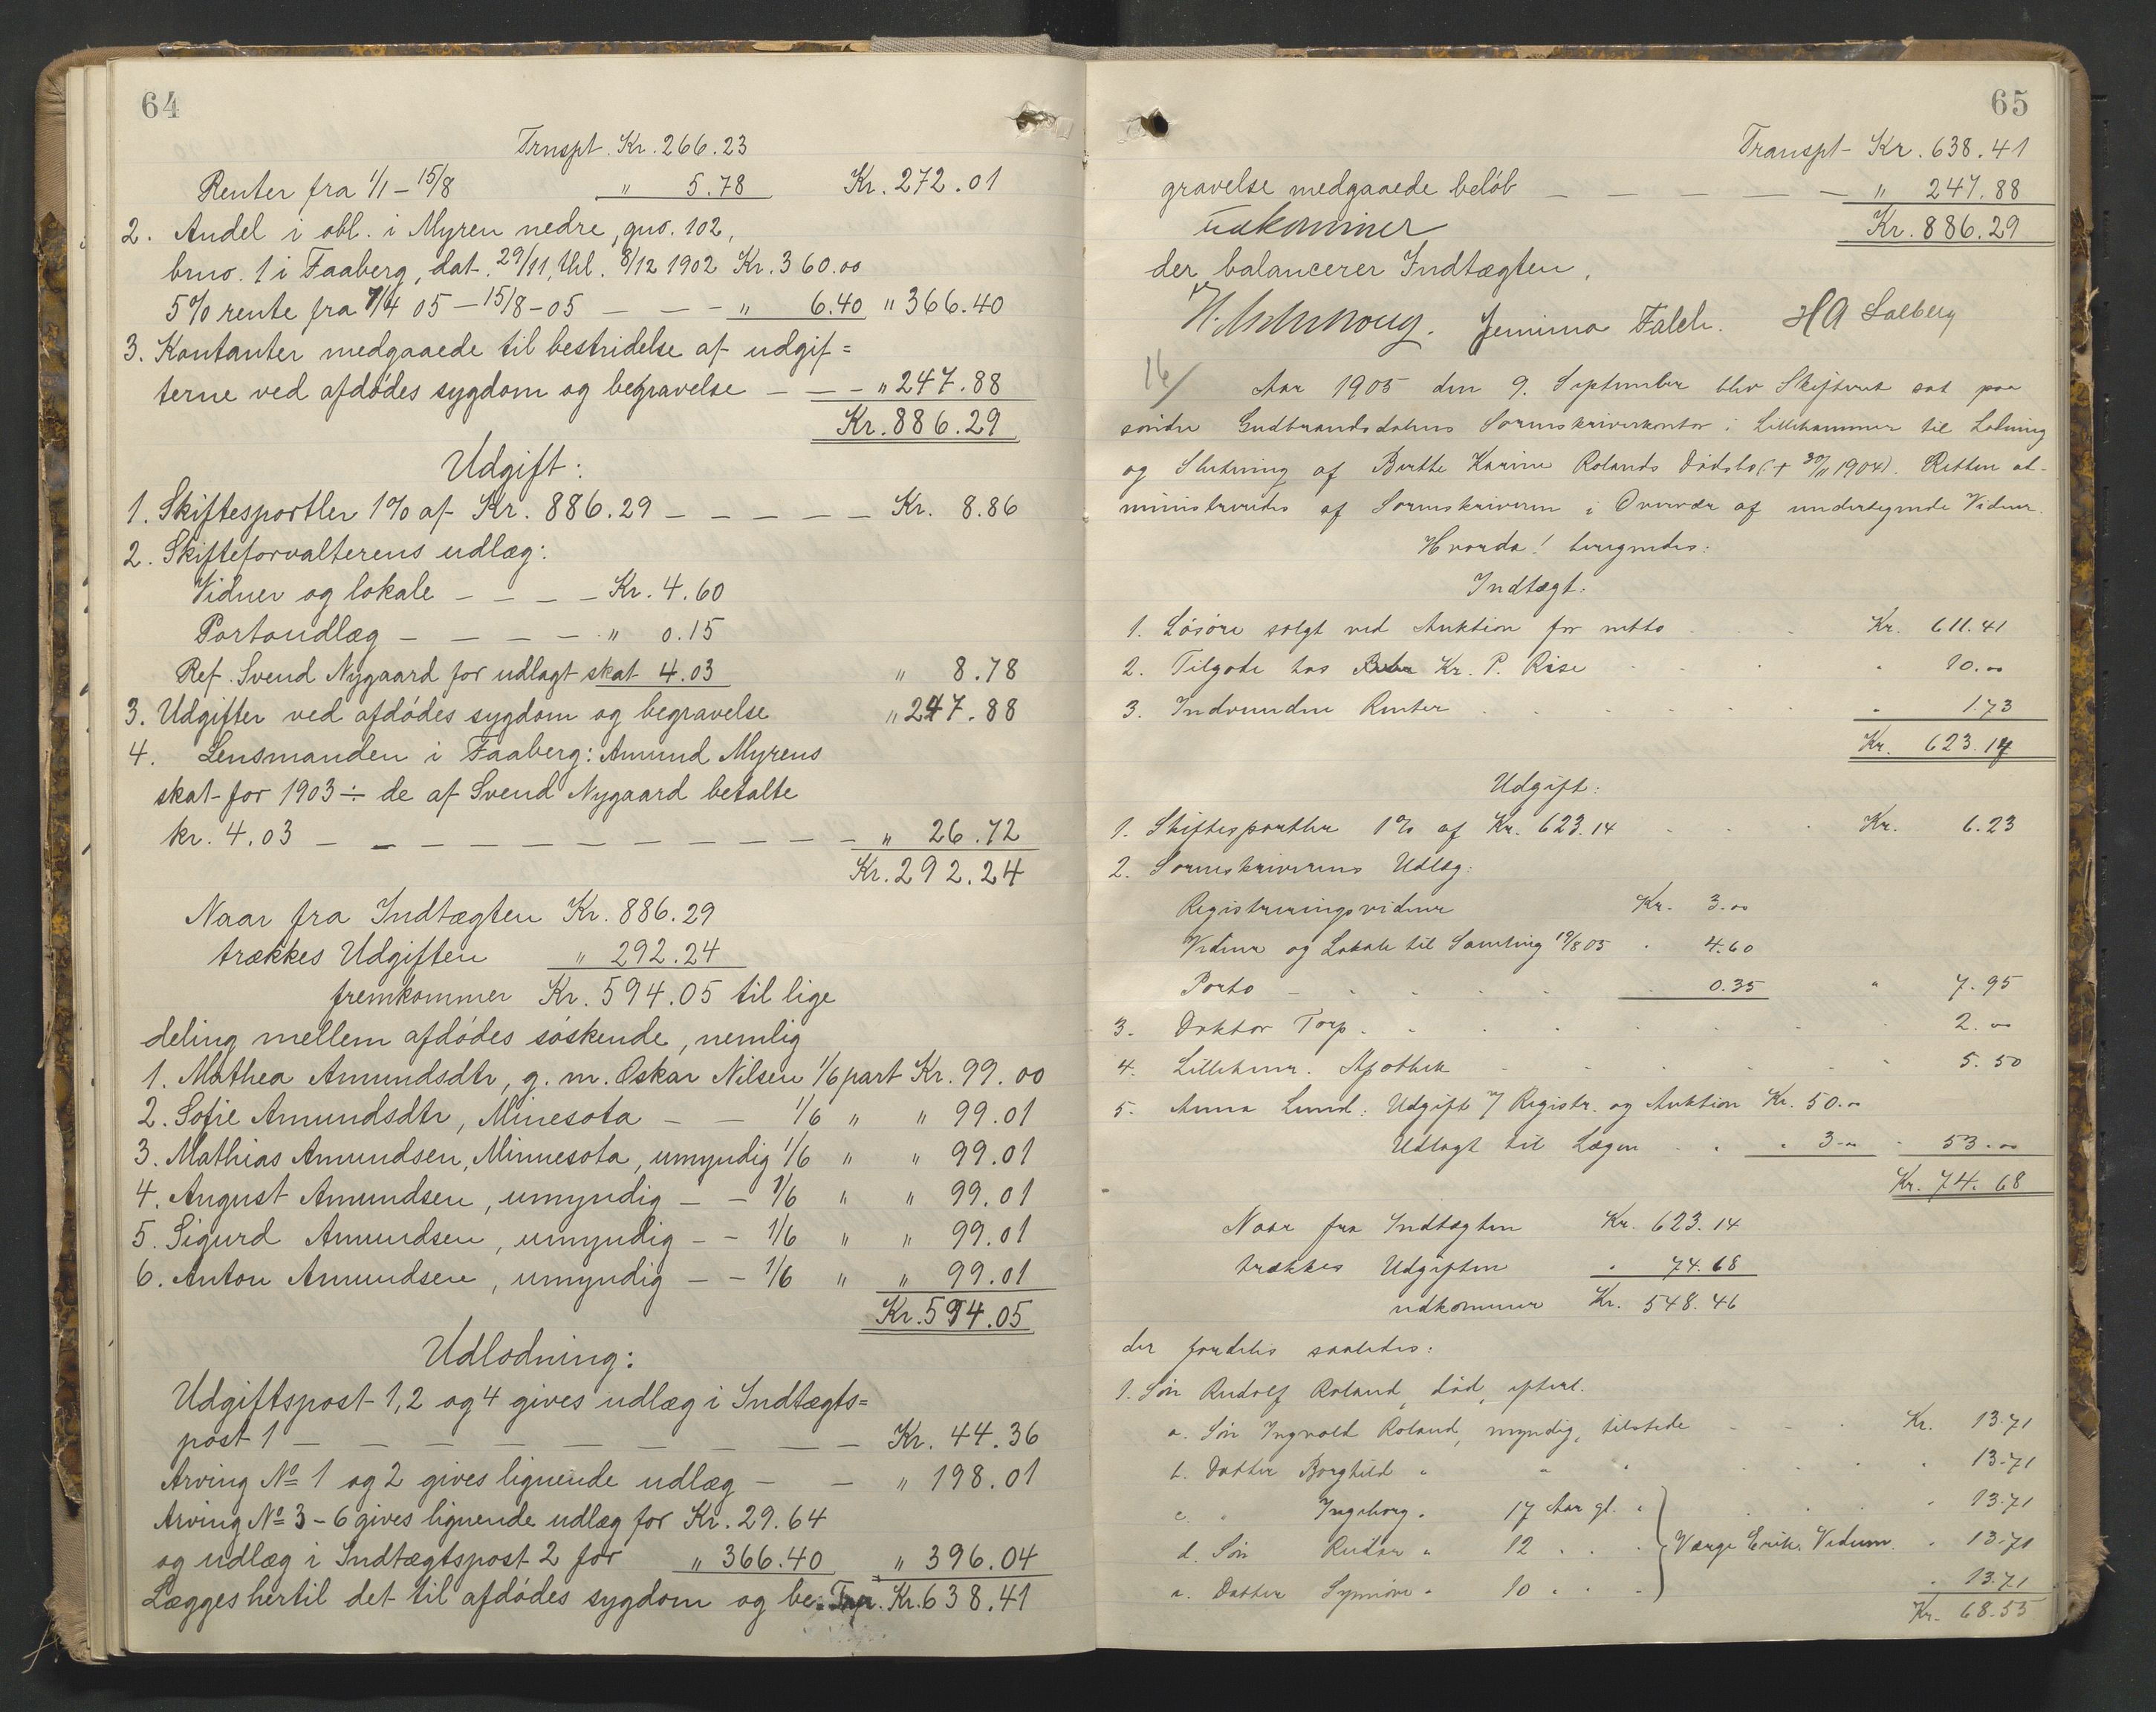 64
Trnspt. Kr. 266.23
Renter fra 1/1 – 15/8 " 5.78 Kr. 272.01
2. Andel i obl. i Myren nedre, gno. 102,
brno. 1 i Faaberg, dat. 29/11, thl. 8/12 1902 Kr. 360.00
5% rente fra 7/4 05 – 15/8 – 05 — — – " 6.40 " 366.40
3. Kontanter medgaaede til bestridelse af udgif=
terne ved afdødes sygdom og begravelse — — – " 247.88
Kr. 886.29
Udgift:
1. Skiftesportler 1% af Kr. 886.29 — — — — — Kr. 8.86
2. Skifteforvalterens udlæg:
Vidner og lokale — — — — Kr. 4.60
Portoudlæg — — — — " 0.15
Ref. Svend Nygaard for udlagt skat 4.03 " 8.78
3. Udgifter ved afdødes sygdom og begravelse " 247.88
4. Lensmanden i Faaberg: Amund Myrens
skat for 1903 ÷ de af Svend Nygaard betalte
kr. 4.03 — — — — — — — — — — " 26.72
Kr. 292.24
Naar fra Indtægten Kr. 886.29
trækkes Udgiften " 292.24
fremkommer Kr. 594.05 til lige
deling mellem afdødes søskende, nemlig
1. Mathea Amundsdtr, g. m. Oskar Nilsen 1/6 part Kr. 99.00
2. Sofie Amundsdtr, Minesota — — 1/6 " " 99.01
3. Mathias Amundsen, Minnesota, umyndig 1/6 " " 99.01
4. August Amundsen, umyndig — – 1/6 " " 99.01
5. Sigurd Amundsen, umyndig – – 1/6 " " 99.01
6. Anton Amundsen, umyndig — – 1/6 " " 99.01
Kr. 594.05
Udlodning:
Udgiftspost 1, 2 og 4 gives udlæg i Indtægts=
post 1 — — — — — — — — Kr. 44.36
Arving No 1 og 2 gives lignende udlæg — — " 198.01
Arving No 3 – 6 gives lignende udlæg for Kr. 29.64
og udlæg i Indtægtspost 2 for " 366.40 " 396.04
Lægges hertil det til afdødes sygdom og be- Trp. Kr. 638.41
65
Transpt – Kr. 638.41
gravelse medgaaede beløb — — — — — " 247.88
udkommer Kr. 886.29
der balancerer Indtægten.
Jemima Falch. HA Solberg
16/
Aar 1905 den 9. September blev Skifteret sat paa
søndre Gudbrandsdalens Sorenskriverkontor i Lillehammer til Lodning
og Slutning af Berthe Karine Rolands Dødsbo (+ 30/11 1904). Retten ad-
ministreredes af Sorenskriveren i Overvær af undertegnede Vidner.
Hvorda! beregnedes:
Indtægt:
1. Løsøre solgt ved Auktion for netto Kr. 611.41
2. Tilgode hos Kr. P. Rise " 10.00
3. Indvundne Renter " 1.73
Kr. 623.14
Udgift:
1. Skiftesportler 1% af Kr. 623.14 Kr. 6.23
2. Sorenskriverens Udlæg:
Registreringsvidner Kr. 3.00
Vidner og Lokale til Samling 19/8 05 " 4.60
Porto " 0.35 " 7.95
3. Doktor Torp " 2.00
4. Lillehmr. Apothek " 5.50
5. Anna Lund: Udgift v/ Registr. og Auktion Kr. 50.00
Udlagt til Lægen " 3.00 " 53.00
Kr. 74.68
Naar fra Indtægten Kr. 623.14
trækkes Udgiften " 74.68
udkommer Kr. 548.46
der fordeles saaledes:
1. Søn Rudolf Roland, død, efterl.
a. Søn Ingvald Roland, myndig, tilstede Kr. 13.71
b. Datter Borghild " " " " 13.71
c. " Ingeborg " 17 Aar gl. " " 13.71
d. Søn Reidar " 12 " " " Værge Erik Vedum " 13.71
e. Datter Synnøve " 10 " " " " 13.71
Kr. 68.55